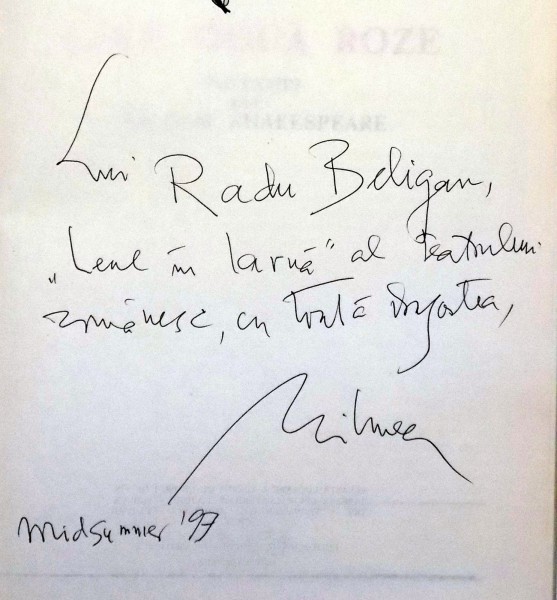 ROZE
SHAKESPEARE
Lui Radu Beligan,
„Leul în Iarnă” al teatrului
românesc, cu toată dragostea,
Mihnea
Midsummer '97